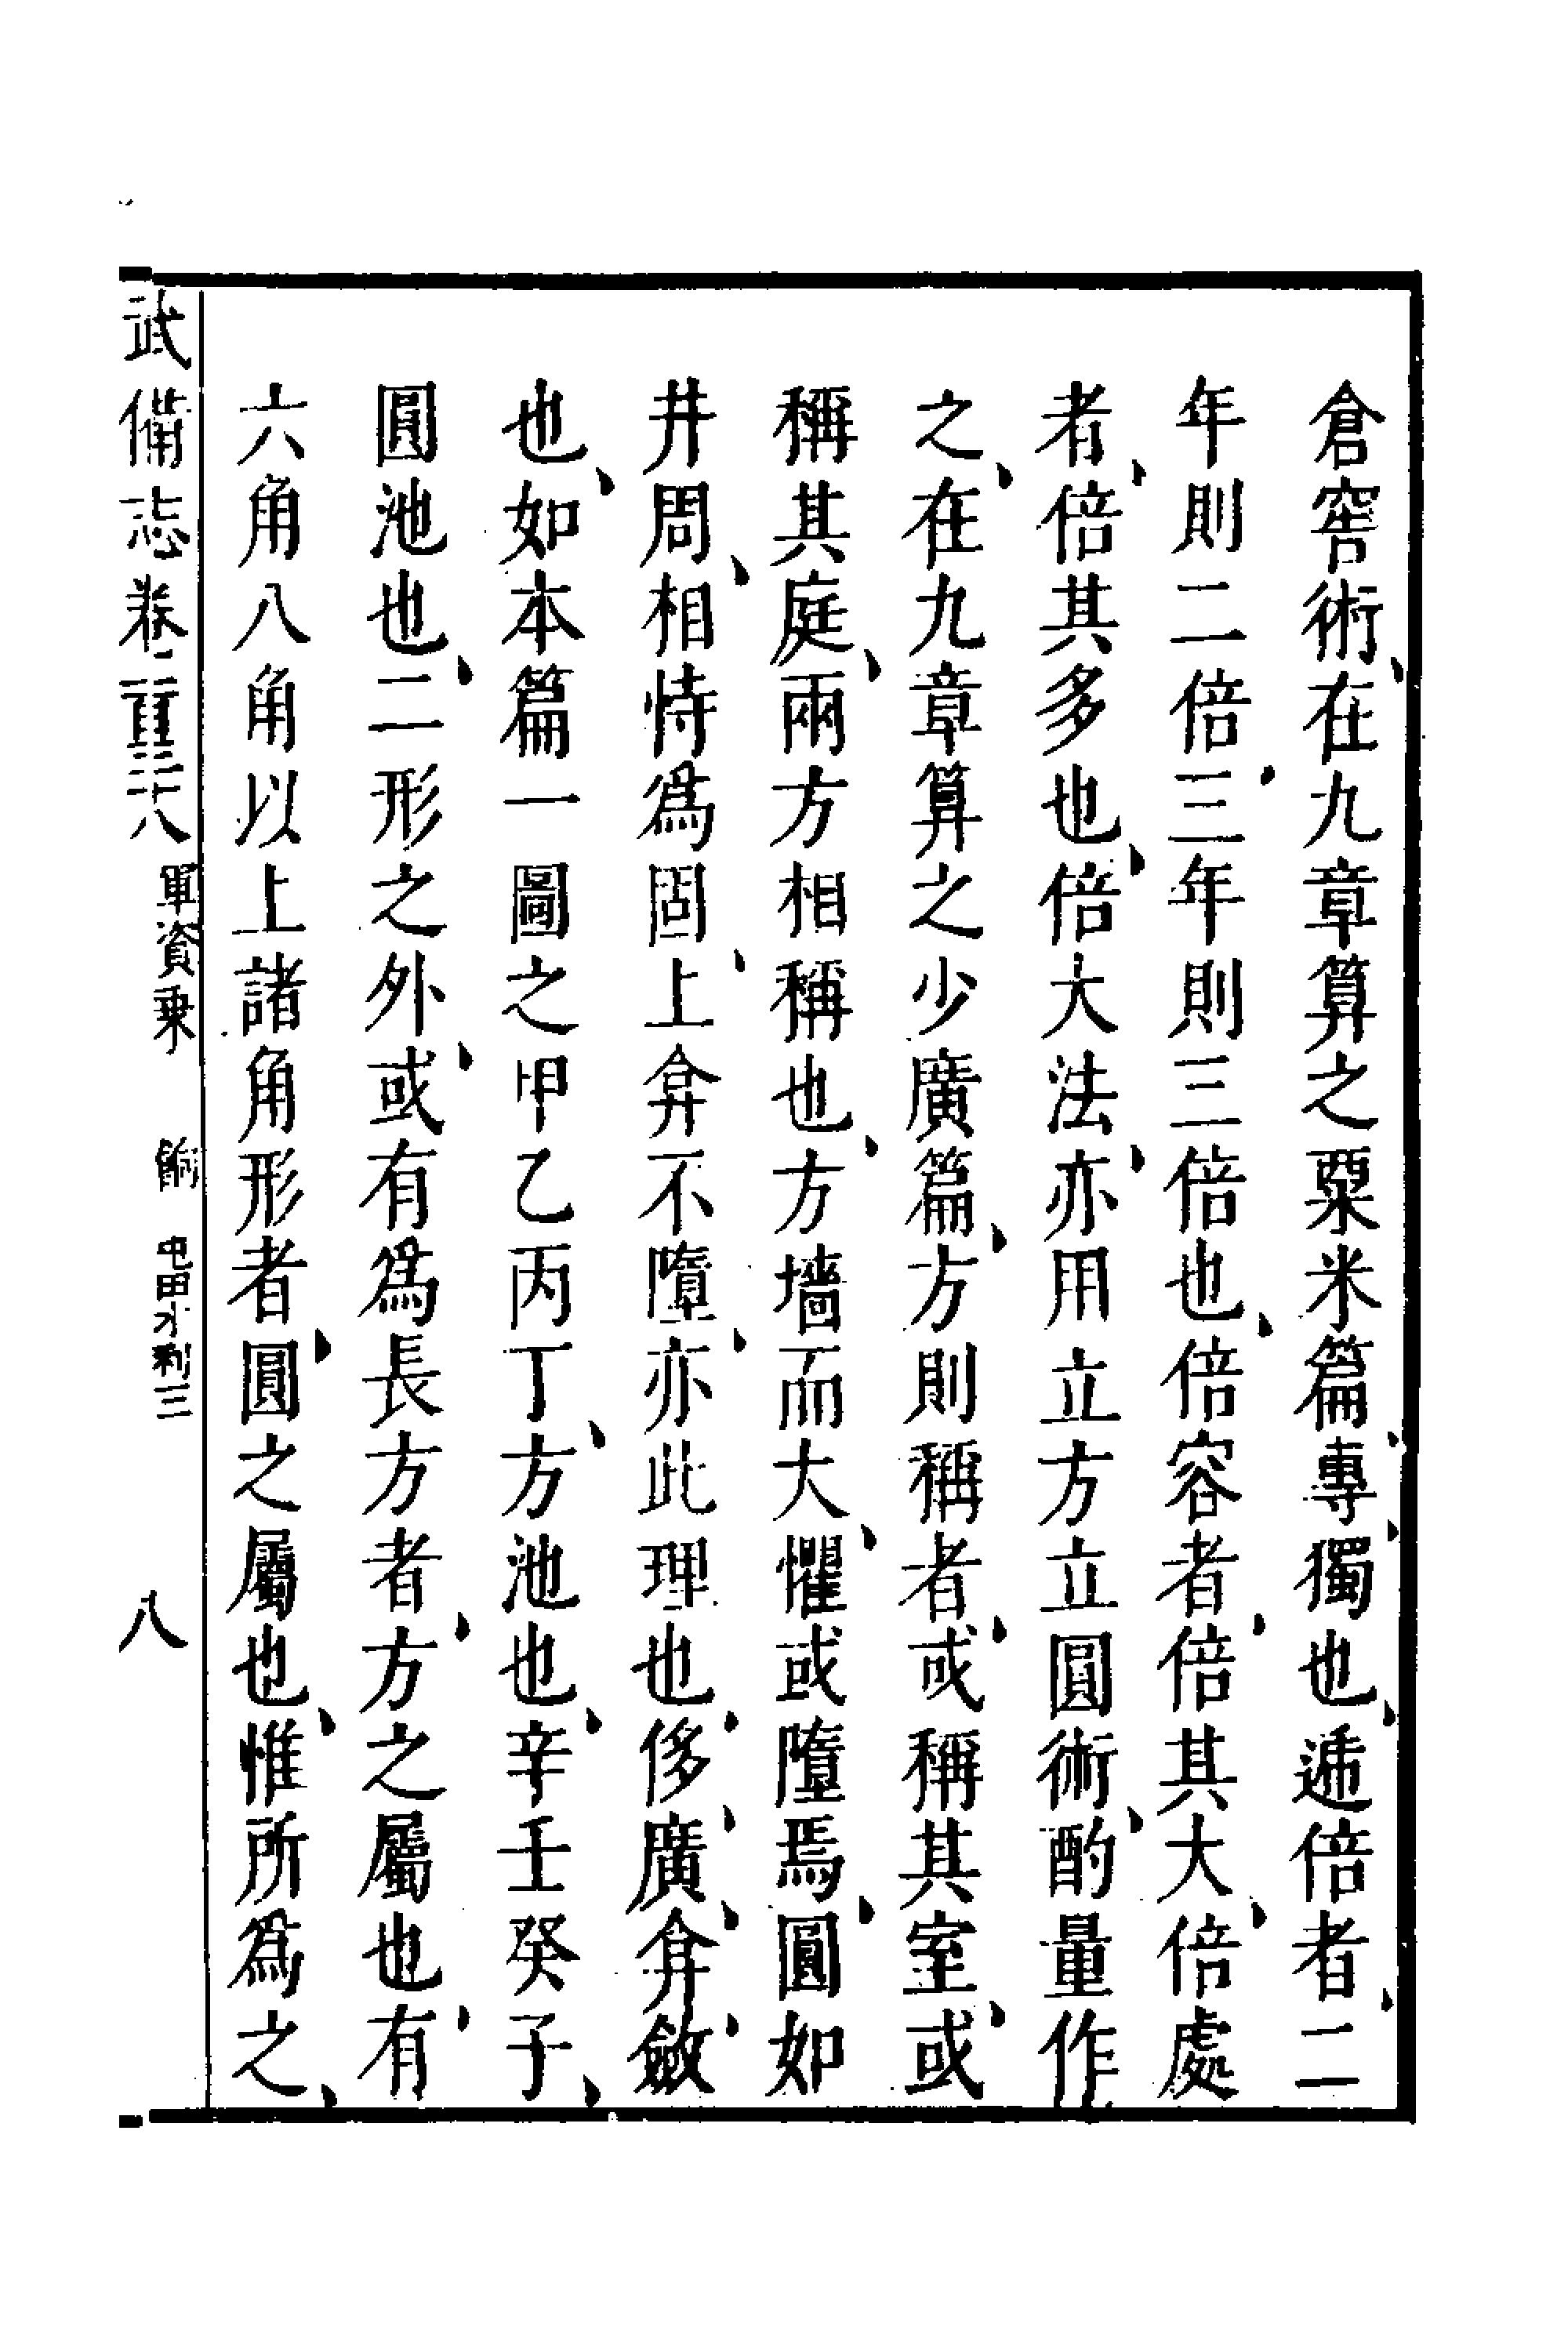 倉窖術、在九章算之粟米篇、專、獨也、遞倍者、二
年則二倍、三年則三倍也、倍容者、倍其大、倍處
者、倍其多也、倍大法、亦用立方立圓術、酌量作
之、在九章算之少廣篇、方則稱者、或稱其室、或
稱其庭、兩方相稱也、方墻而大、懼或墮焉、圓如
井周、相恃爲固、上弇不墮、亦此理也、侈、廣、弇、斂
也、如本篇一圖之甲乙丙丁、方池也、辛壬癸子、
圓池也、二形之外、或有爲長方者、方之屬也、有
六角八角以上諸角形者、圓之屬也、惟所爲之、
武備志卷二百三十八 軍資乗 餉 屯田水利三 八